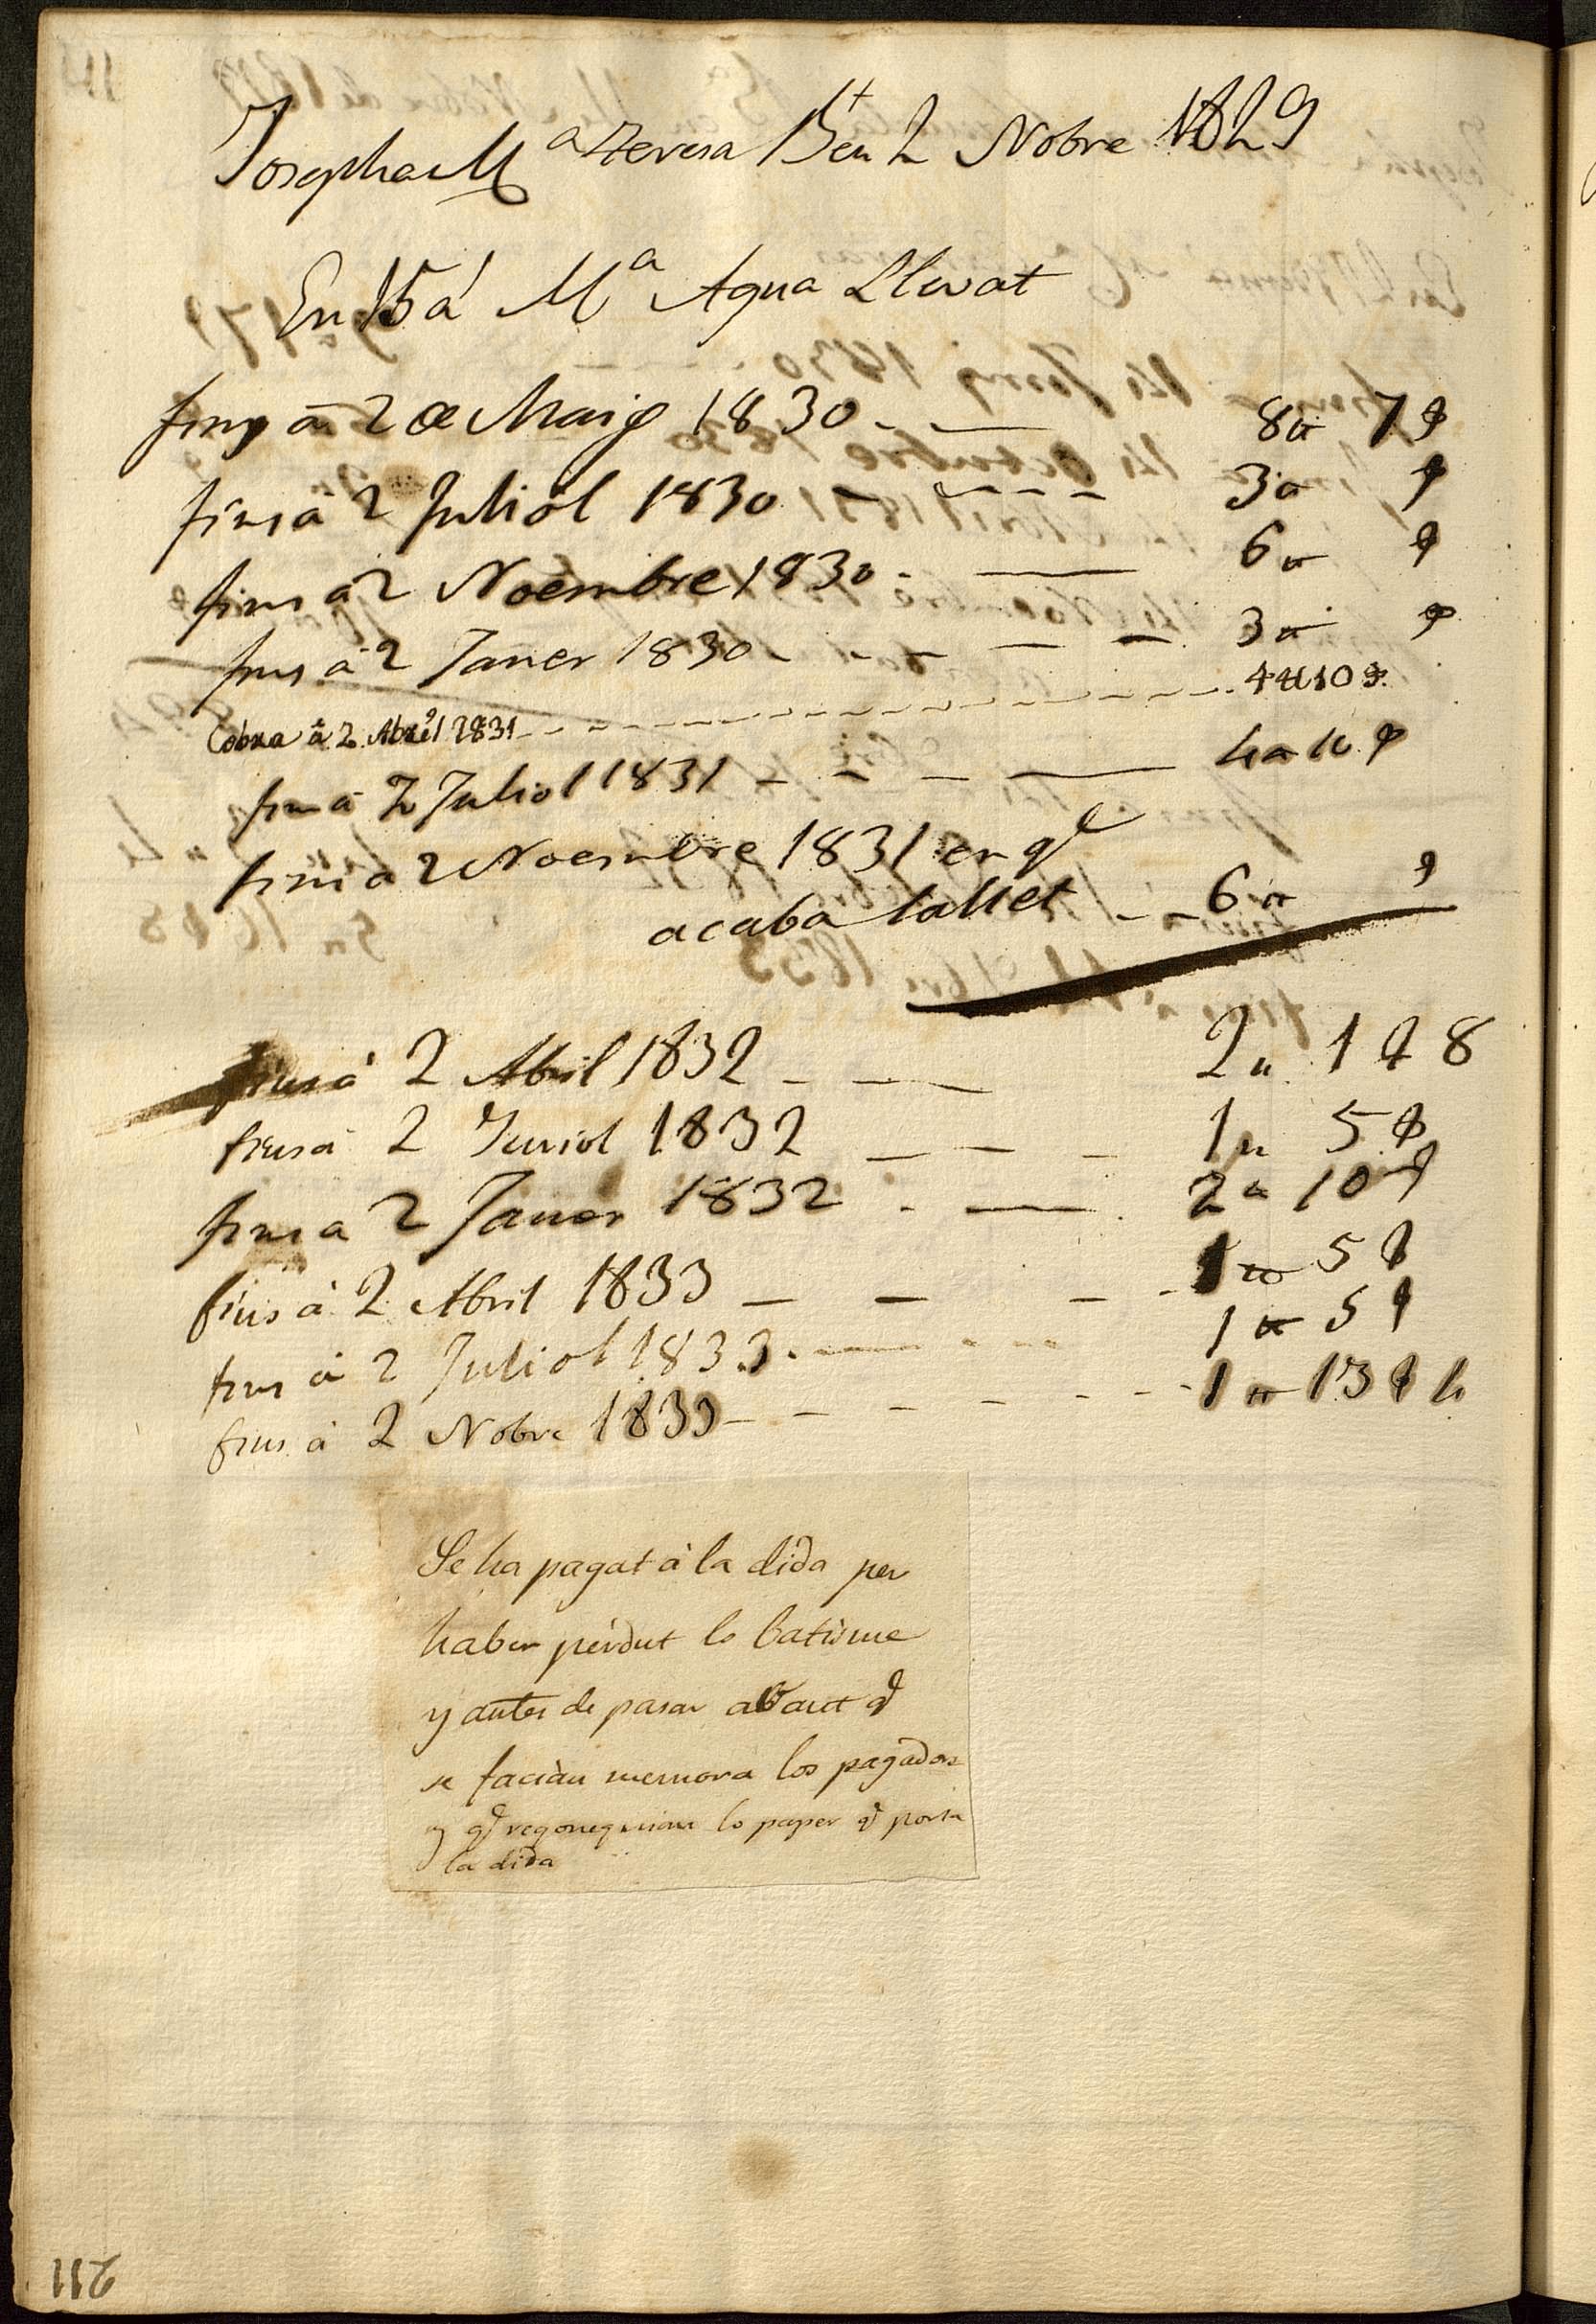 Josepha Mª Teresa Bt en 2 Nobre 1829
En 15 á Mª Agna Llevat
fins á 2 de Maig 1830 - — 8 ₶ 7 s
fins á 2 Juliol 1830 - - - - 3 ₶ s
fins á 2 Noembre 1830 - — 6 ₶ s
fins á 2 Janer 1830 - - - — — 3 ₶ s
Cobra á 2 Abril 1831 - - - - 4 ₶ 10 s
fins á 2 Juliol 1831 - - - — 4 ₶ 10 s
fins á 2 Noembre 1831 en ql
acaba lallet - - 6 ₶ s
fins á 2 Abril 1832 - — — 2 ₶ 1 s 8
fins á 2 Juriol 1832 — — - 1 ₶ 5 s
fins a 2 Janer 1832 - — 2 ₶ 10 s
fins á 2 Abril 1833 — — - - 1 ₶ 5 s
fins á 2 Juliol 1833 - — - - - 1 ₶ 5 s
fins á 2 Nobre 1833 - - - - - - 1 ₶ 13 s 4
Se ha pagat á la dida per
haber perdut lo batisme
y antes de pasar avant q
se facian memoria los pagadors
y q regoneguian lo paper q porta
la dida
211